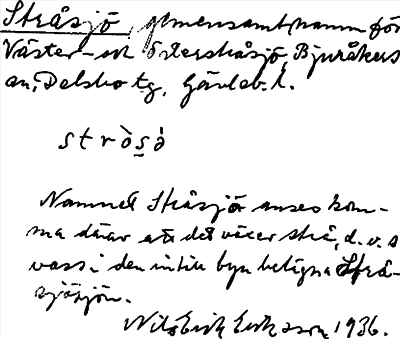 Stråsjö, gemensamt namn för
Väster- och Österstråsjö, Bjuråkers
sn, Delsbo tg, Gävleb. l.
stròsò
Namnet Stråsjö anses kom-
ma därav att det växer strå, d.v.s
vass i den intill byn belägna Strå-
sjösjön.
Nils Erik Eriksson 1936.